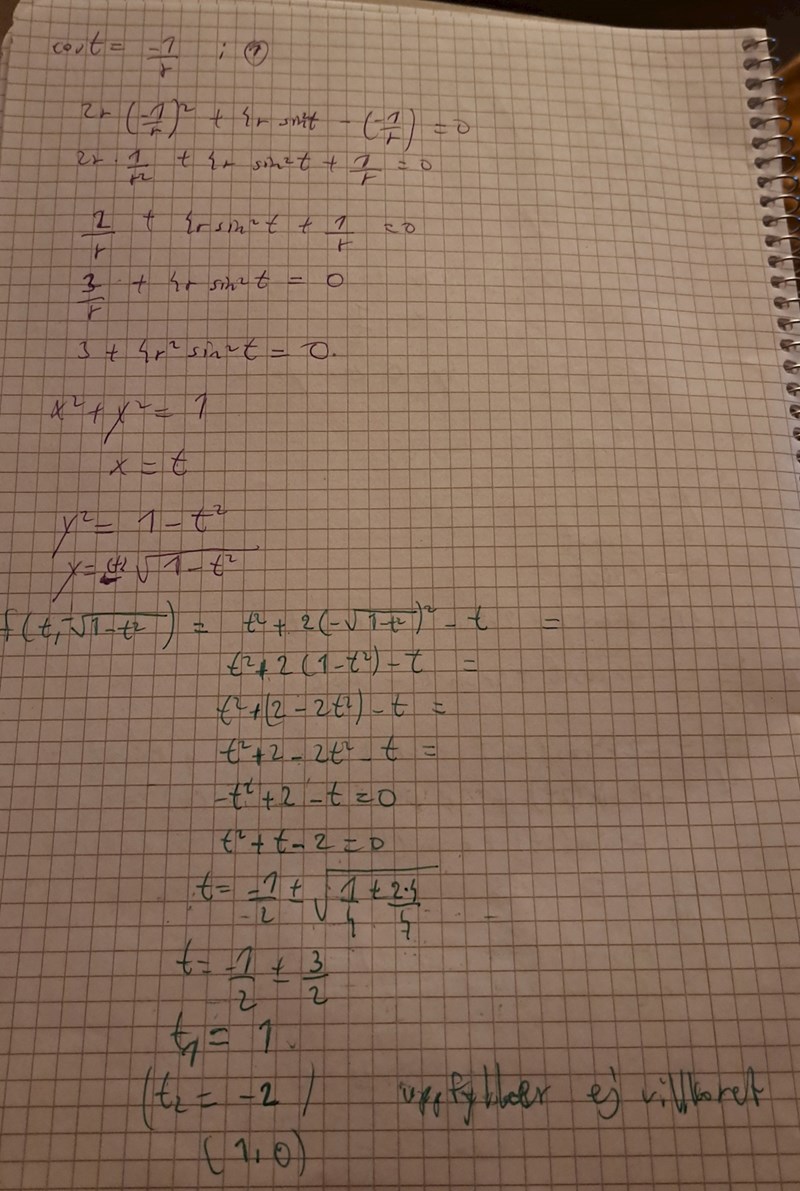 cos t = -1/r ; ②
2r (-1/r)² + 4r sin²t - (-1/r) = 0
2r · 1/r² + 4r sin²t + 1/r = 0
2/r + 4r sin²t + 1/r = 0
3/r + 4r sin²t = 0
3 + 4r² sin²t = 0.
x² + y² = 1
x = t
y² = 1 - t²
y = (±) √(1 - t²)
f(t, -√(1-t²)) = t² + 2(-√(1-t²))² - t =
t² + 2(1-t²) - t =
t² + (2 - 2t²) - t =
t² + 2 - 2t² - t =
-t² + 2 - t = 0
t² + t - 2 = 0
t = -1/2 ± √(1/4 + 2·4/4)
t = -1/2 ± 3/2
t₁ = 1
(t₂ = -2) uppfyller ej villkoret
(1, 0)